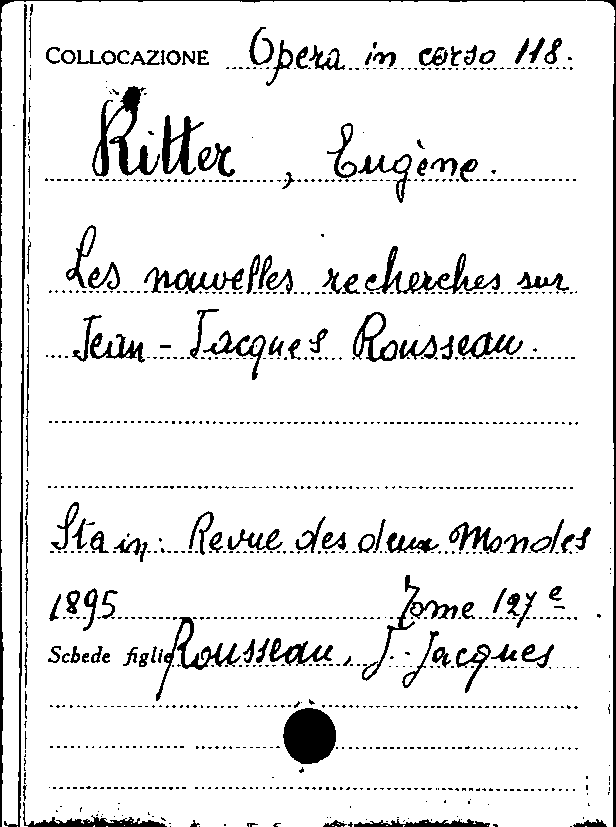 COLLOCAZIONE Opera in corso 118.
Ritter, Eugène.
Les nouvelles recherches sur
Jean-Jacques Rousseau.
Sta in: Revue des deux Mondes
1895 Tome 127e
Schede figlie Rousseau, J. Jacques